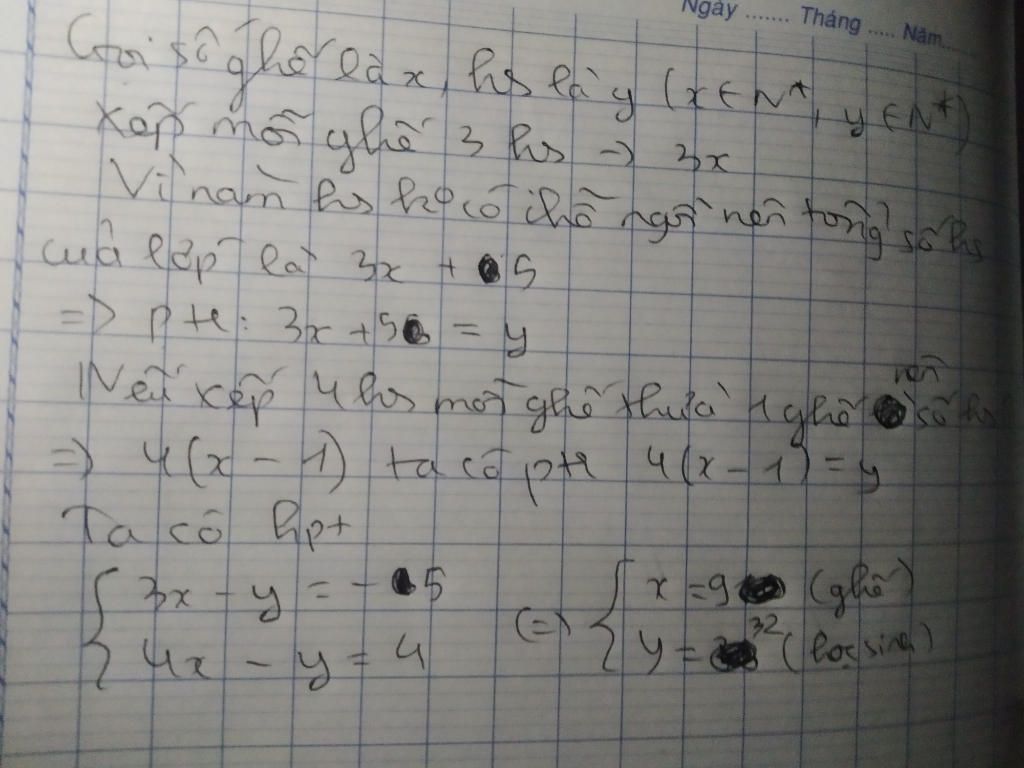 Ngày ....... Tháng ..... Năm...
Gọi số ghế là x, hs là y (x ∈ N*, y ∈ N*)
Xếp mỗi ghế 3 hs → 3x
Vì năm hs ko có chỗ ngồi nên tổng số hs
của lớp là 3x + 5
=> ptr: 3x + 5 = y
Nếu xếp 4 hs một ghế thừa 1 ghế nên số hs
=> 4(x - 1) ta có ptr 4(x - 1) = y
Ta có hpt
{ 3x - y = - 5 (=) { x = 9 (ghế)
{ 4x - y = 4 { y = 32 (học sinh)